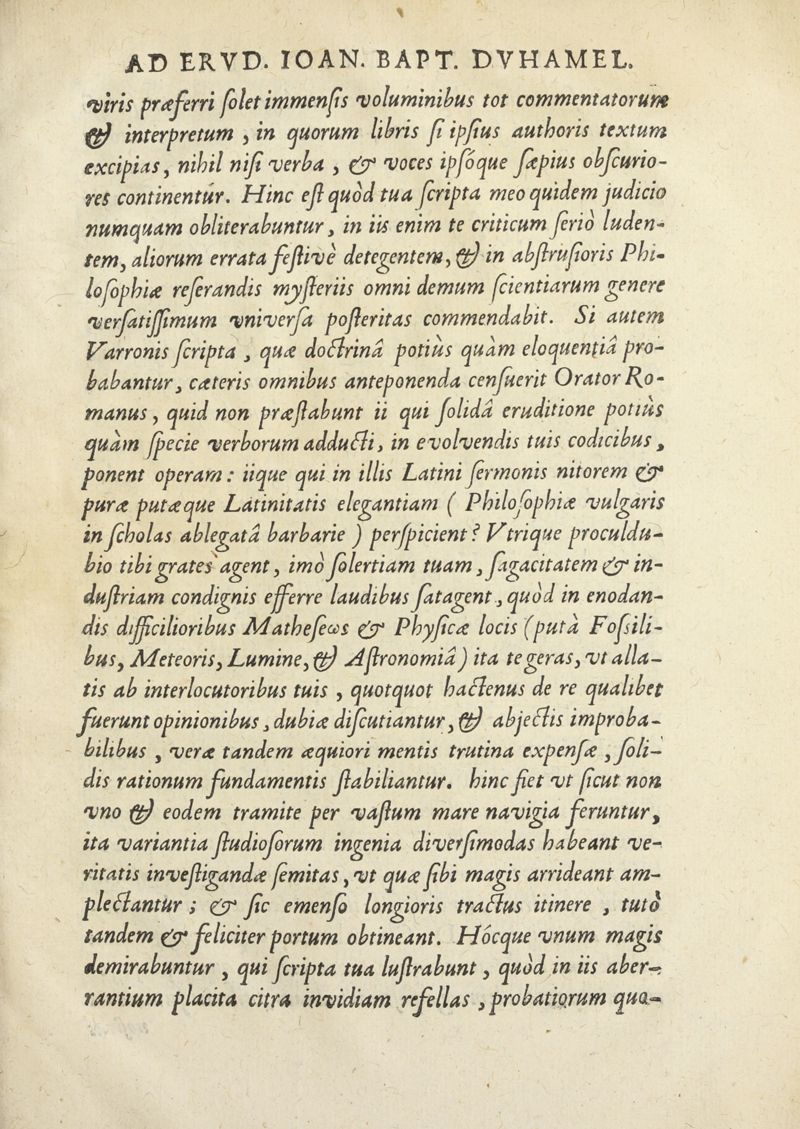 AD ERVD. IOAN. BAPT. DVHAMEL.
viris præferri ſolet immenſis voluminibus tot commentatorum
& interpretum , in quorum libris ſi ipſius authoris textum
excipias, nihil niſi verba , & voces ipſóque ſæpius obſcurio-
res continentúr. Hinc eſt quòd tua ſcripta meo quidem judicio
numquam obliterabuntur, in iis enim te criticum ſeriò luden-
tem, aliorum errata feſtivè detegentem, & in abſtruſioris Phi-
loſophiæ reſerandis myſteriis omni demum ſcientiarum genere
verſatiſſimum vniverſa poſteritas commendabit. Si autem
Varronis ſcripta , quæ doctrinâ potiùs quàm eloquentiâ pro-
babantur, cæteris omnibus anteponenda cenſuerit Orator Ro-
manus, quid non præſtabunt ii qui ſolidâ eruditione potiùs
quàm ſpecie verborum adducti, in evolvendis tuis codicibus,
ponent operam: iique qui in illis Latini ſermonis nitorem &
puræ putæque Latinitatis elegantiam ( Philoſophiæ vulgaris
in ſcholas ablegatâ barbarie ) perſpicient? Vtrique proculdu-
bio tibi grates agent, imò ſolertiam tuam, ſagacitatem & in-
duſtriam condignis efferre laudibus ſatagent, quòd in enodan-
dis difficilioribus Matheſeωs & Phyſicæ locis (putà Foſsili-
bus, Meteoris, Lumine, & Aſtronomiâ) ita te geras, vt alla-
tis ab interlocutoribus tuis , quotquot hactenus de re qualibet
fuerunt opinionibus, dubiæ diſcutiantur, & abjectis improba-
bilibus , veræ tandem æquiori mentis trutina expenſæ , ſoli-
dis rationum fundamentis ſtabiliantur. hinc fiet vt ſicut non
vno & eodem tramite per vaſtum mare navigia feruntur,
ita variantia ſtudioſorum ingenia diverſimodas habeant ve-
ritatis inveſtigandæ ſemitas, vt quæ ſibi magis arrideant am-
plectantur ; & ſic emenſo longioris tractus itinere , tutò
tandem & feliciter portum obtineant. Hócque vnum magis
demirabuntur , qui ſcripta tua luſtrabunt, quòd in iis aber-
rantium placita citra invidiam refellas , probatiorum quo-